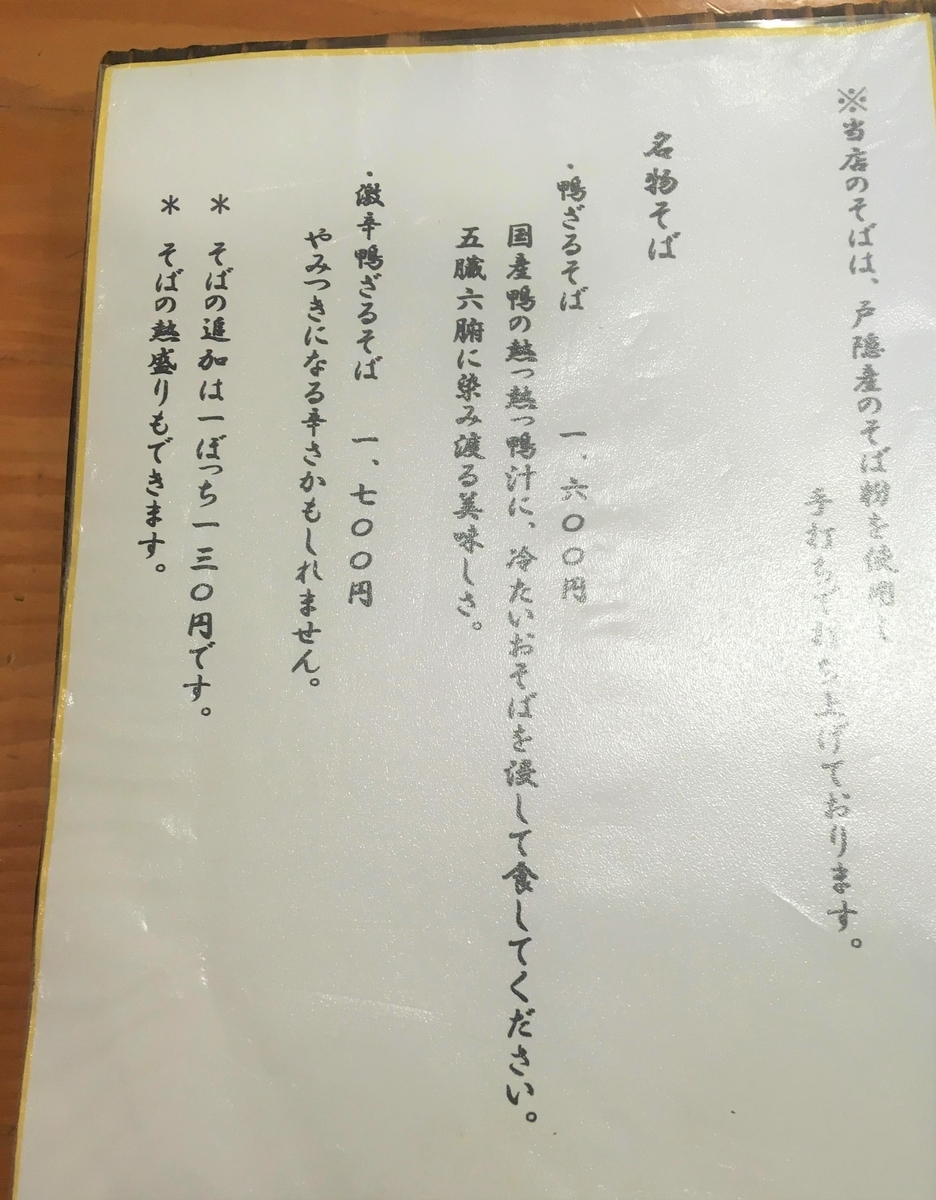 ※当店のそばは、戸隠産のそば粉を使用し
手打ちで打ち上げております。
名物そば
・鴨ざるそば　一、六〇〇円
国産鴨の熱っ熱っ鴨汁に、冷たいおそばを浸して食してください。
五臓六腑に染み渡る美味しさ。
・激辛鴨ざるそば　一、七〇〇円
やみつきになる辛さかもしれません。
＊　そばの追加は一ぼっち一三〇円です。
＊　そばの熱盛りもできます。